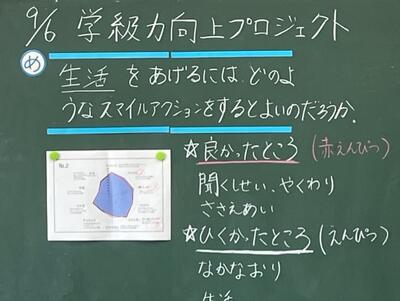 9/6 学級力向上プロジェクト
め 生活をあげるには、どのよ
うなスマイルアクションをするとよいのだろうか。
☆良かったところ(赤えんぴつ)
聞くしせい、やくわり
ささえあい
☆ひくかったところ(えんぴつ)
なかなおり
生活
No.2